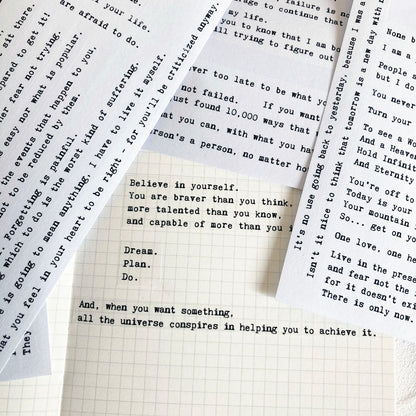 your life.
are afraid to do.
sit there.
pared to get it!
fear not trying.
easy nor what is popular.
the events that happen to you,
not to be reduced by them.
Forgetting is painful.
which to do is the worst kind of suffering.
is going to mean anything, I have to live it myself.
you feel in your heart to be right - for you'll be criticized anyway.
They
failure is
courage to continue that
my life.
you to know that I am
all trying to figure out
ver too late to be what you
not failed. If you want
ust found 10,000 ways that
t you can, with what you ha
erson's a person, no matter ho
It's no use going back to yesterday, because I was a
Isn't it nice to think that tomorrow is a new day with
None b
I am a
People
but I
You never
Turn your
To see a Wo
And a Heave
Hold Infinit
And Eternity
You're off to
Today is your
Your mountain
So... get on yo
One love, one he
Live in the prese
and fear not the
for it doesn't exi
There is only now.
Believe in yourself.
You are braver than you think.
more talented than you know.
and capable of more than you i
Dream.
Plan.
Do.
And, when you want something,
all the universe conspires in helping you to achieve it.